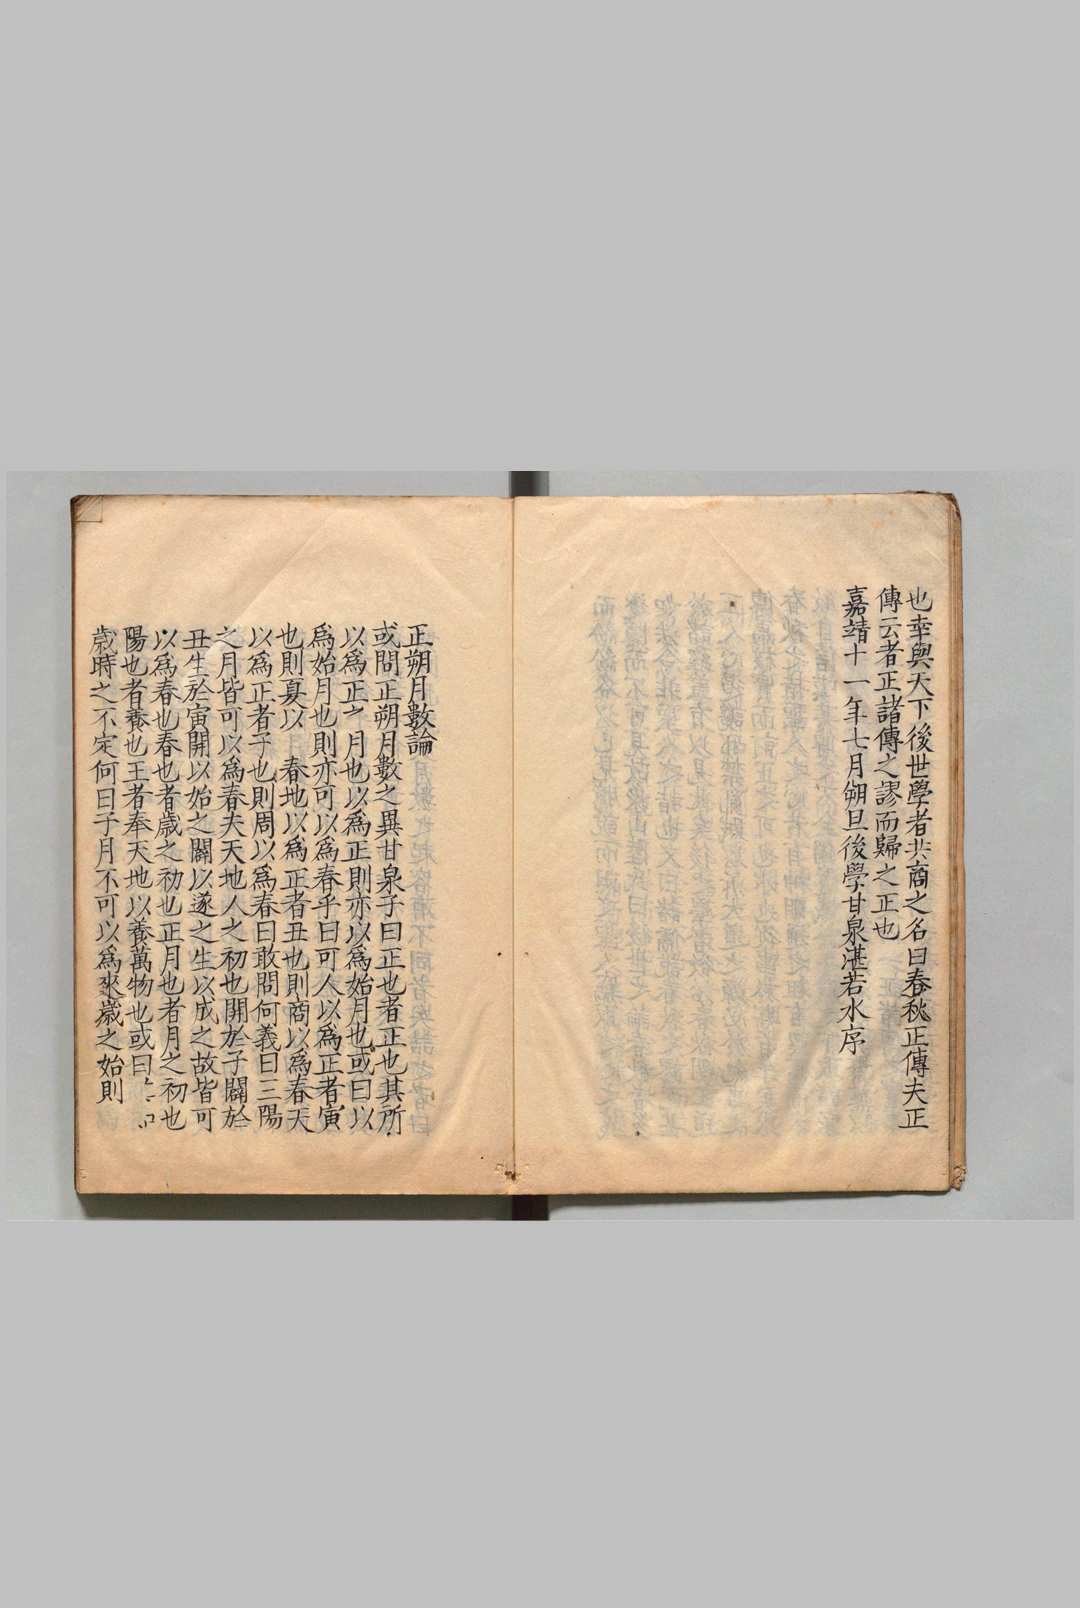 也幸與天下後世學者共商之名曰春秋正傳夫正
傳云者正諸傳之謬而歸之正也
嘉靖十一年七月朔旦後學甘泉湛若水序
正朔月數論
或問正朔月數之異甘泉子曰正也者正也其所
以爲正之月也以爲正則亦以爲始月也或曰以
爲始月也則亦可以爲春乎曰可人以爲正者寅
也則夏以　春地以爲正者丑也則商以爲春天
以爲正者子也則周以爲春曰敢問何義曰三陽
之月皆可以爲春夫天地人之初也開於子闢於
丑生於寅開以始之闢以遂之生以成之故皆可
以爲春也春也者歲之初也正月也者月之初也
陽也者養也王者奉天地以養萬物也或曰
歲時之不定何曰子月不可以爲來歲之始則